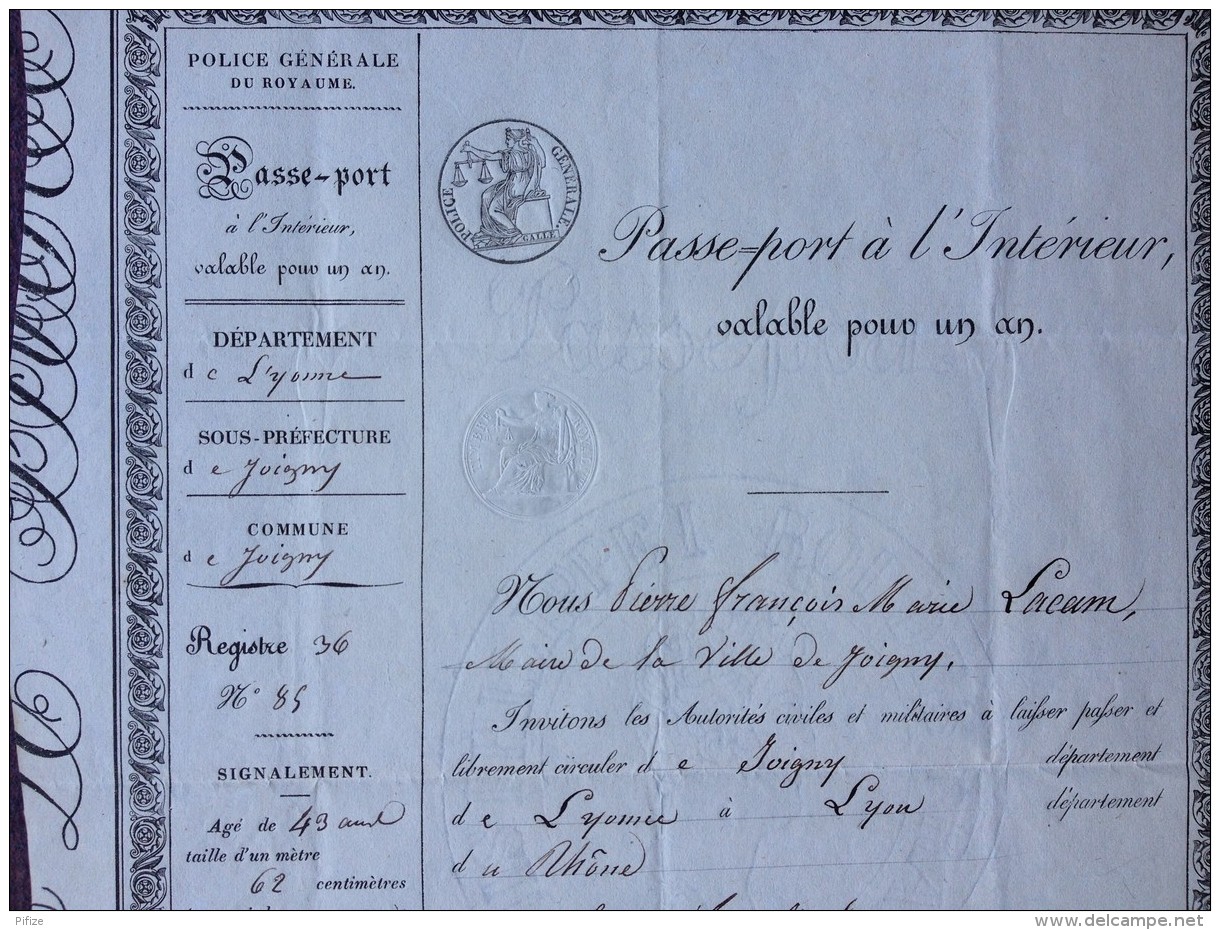 POLICE GÉNÉRALE
DU ROYAUME.
Passe-port
à l'Intérieur,
valable pour un an.
DÉPARTEMENT
de L'yonne
SOUS-PRÉFECTURE
de Joigny
COMMUNE
de Joigny
Registre 36
N° 85
SIGNALEMENT.
Agé de 43 ans
taille d'un mètre
62 centimètres
POLICE GÉNÉRALE.
GALLE
Passe-port à l'Intérieur,
valable pour un an.
Nous Pierre françois Marie Lacam,
Maire de la Ville de Joigny,
Invitons les Autorités civiles et militaires à laisser passer et
librement circuler de Joigny département
de Lyonne à Lyon département
du Rhône
Pifize
www.delcampe.net